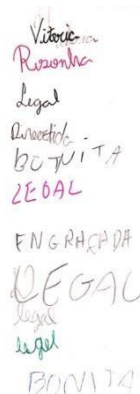 Vitoria
Rosonha
Legal
Divertida
BONITA
LEGAL
ENGRAÇADA
LEGAL
legal
legal
BONITA